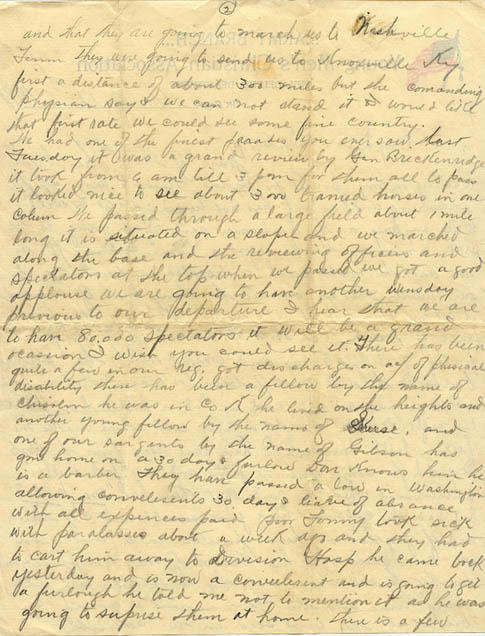 2
and that they are going to march us to Nashville
Tenn they are going to send us to Knoxville Ky
first a distance of about 300 miles but the comanding
physian says we can not stand it I would like
that first rate we could see some fine country.
We had one of the finest praades you ever saw last
Tuesday it was a grand review by Gen Breckenridge
it took from 6 am till 3 pm for them all to pass
it looked nice to see about 3000 trained horses in one
colum We passed through a large field about 1 mile
long it is situated on a slope and we marched
along the base and the reviewing officers and
spectators at the top when we passed we got a good
applouse we are going to have another Wensday
previous to our departure I hear that we are
to have 80,000 spectators it will be a grand
ocassion I wish you could see it. There has been
quite a few in our reg. got discharges on a/c of physical
disability there has been a fellow by the name of
Chisolm he was in Co K he lived on the heights and
another young fellow by the name of and
one of our sargents by the name of Gibson has
gone home on a 30 days furlow Dar Knows him he
is a barber. They have passed a law in Washington
allowing convelesents 30 days leave of absance
with all expences paid Poor Tommy took sick
with paralasses about a week ago and they had
to cart him away to Division Hosp he came back
yesterday and is now a convelecent and is going to get
a furlough he told me not to mention it as he was
going to suprise them at home. There is a few